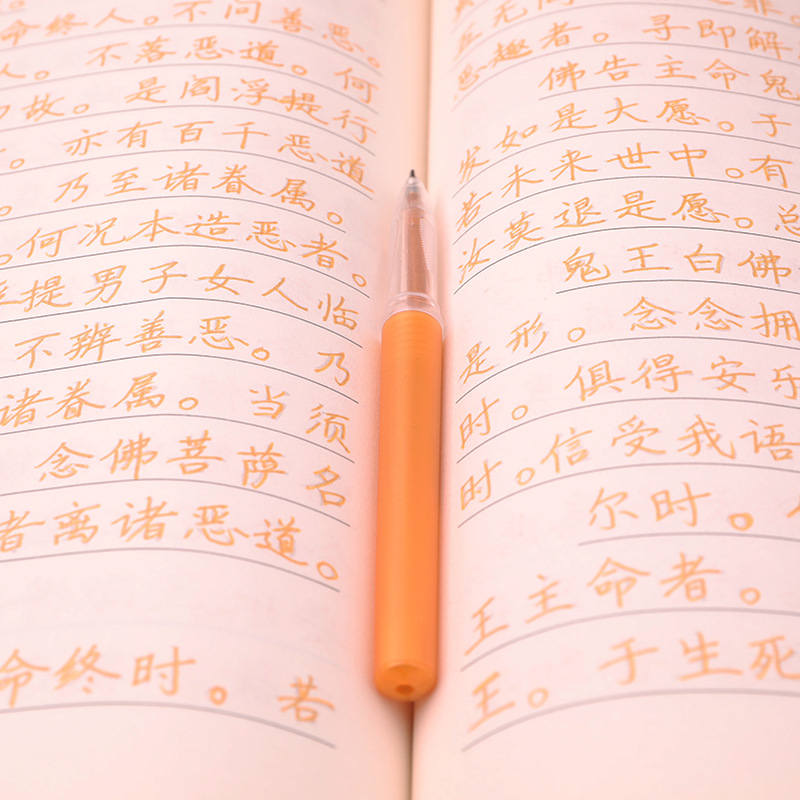 命终人。不问善恶。
人。不落恶道。何
故。是阎浮提行
。亦有百千恶道
。乃至诸眷属。
。何况本造恶者。
提男子女人临
不辨善恶。乃
诸眷属。当须
念佛菩萨名
者离诸恶道。
命终时。若
无间
趣者。寻即解
佛告主命鬼
发如是大愿。于
若未来世中。有
汝莫退是愿。总
鬼王白佛
是形。念念拥
时。俱得安乐
时。信受我语
尔时。
王主命者。
王。于生死